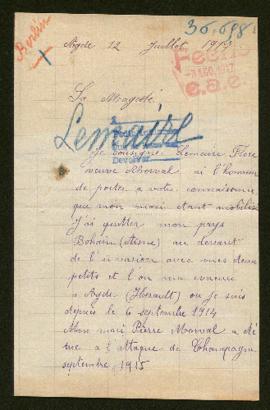 30,698
Berlin
Agde 12 Juillet 1917
Sa Magesté
Lemaire
Devolver
Je soussigné Lemaire Flore
veuve Morval ai l'honneur
de porter a votre connaissance
que mon mari etant mobilisé
J'ai quitter mon pays
Bohain (Aisne) au devant
de l'invasion avec mes deux
petits et l'on ma evacué
a Agde (Herault) ou je suis
depuis le 6 septembre 1914
Mon mari Pierre Morval a été
tué a l'Attaque de Champagne
septembre 1915